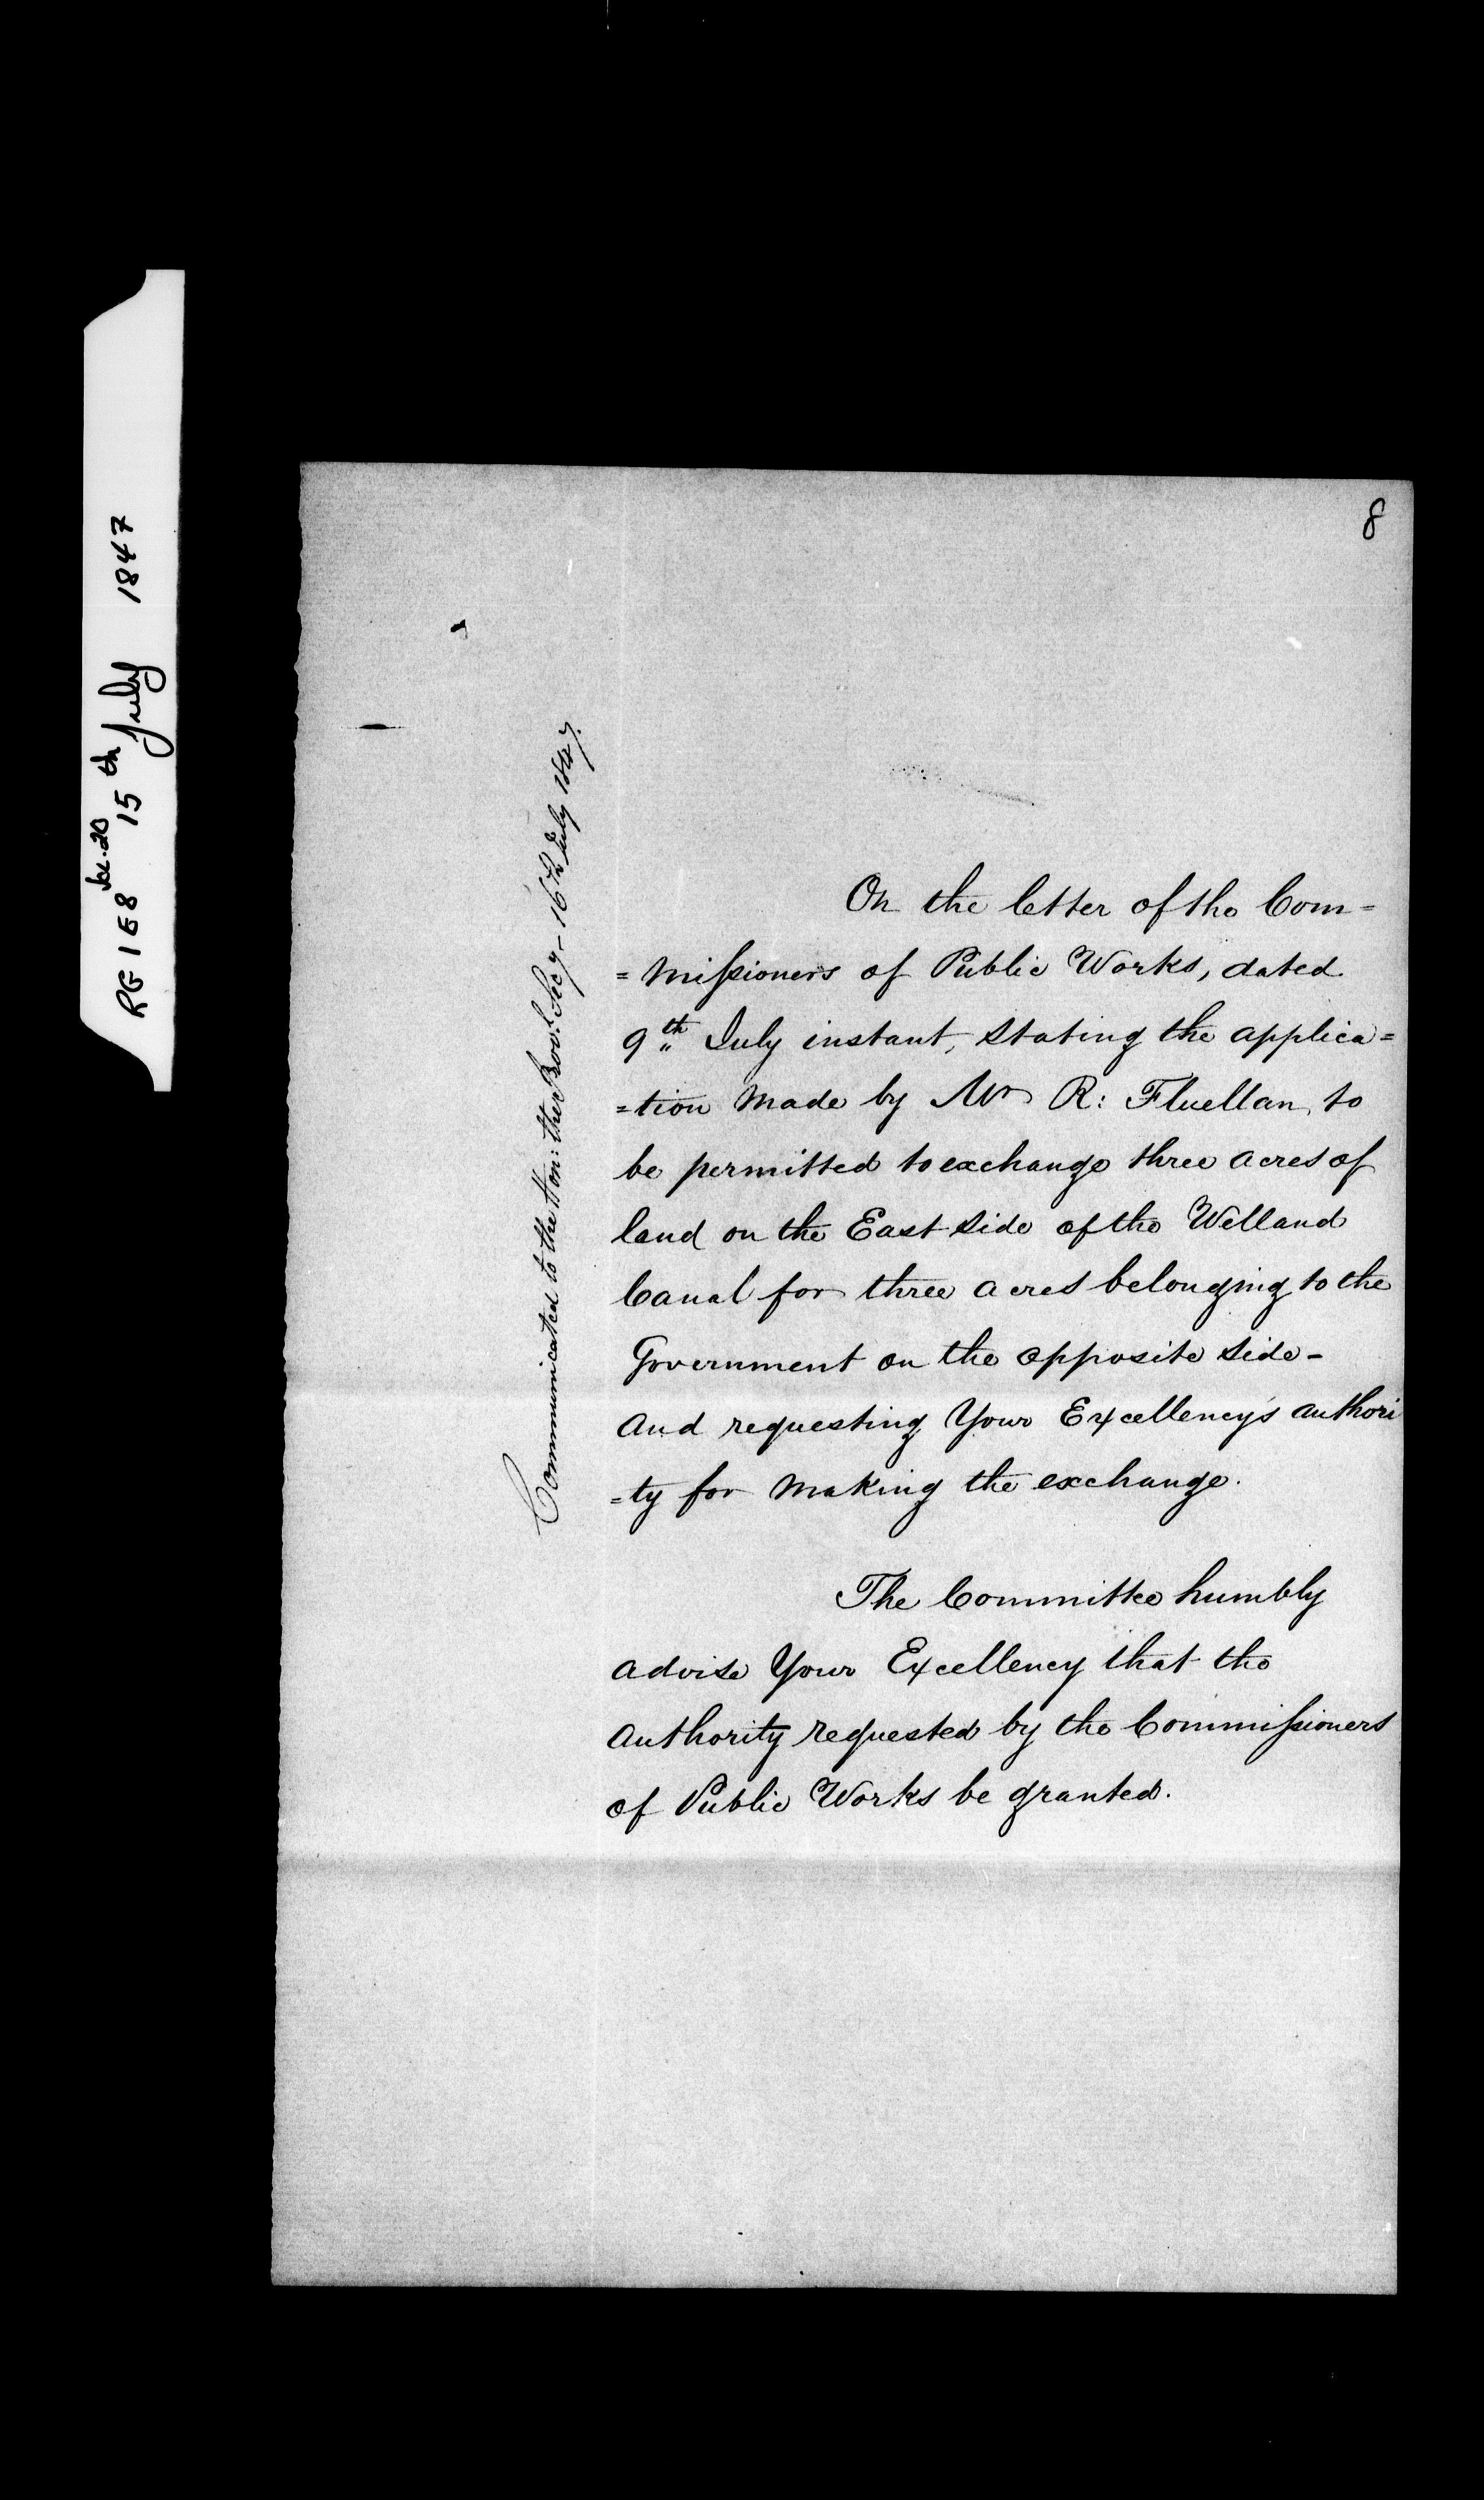 RG 1 E8 Vol. 20 15th July 1847
8
Communicated to the Hon: the Provl. Secy - 16th July 1847.
On the letter of the Com=
=missioners of Public Works, dated
9th July instant, stating the applica=
=tion made by Mr R: Fluellan, to
be permitted to exchange three acres of
land on the East side of the Welland
Canal for three acres belonging to the
Government on the opposite side -
and requesting Your Excellency's authori
=ty for making the exchange.
The Committee humbly
advise Your Excellency that the
authority requested by the Commissioners
of Public Works be granted.